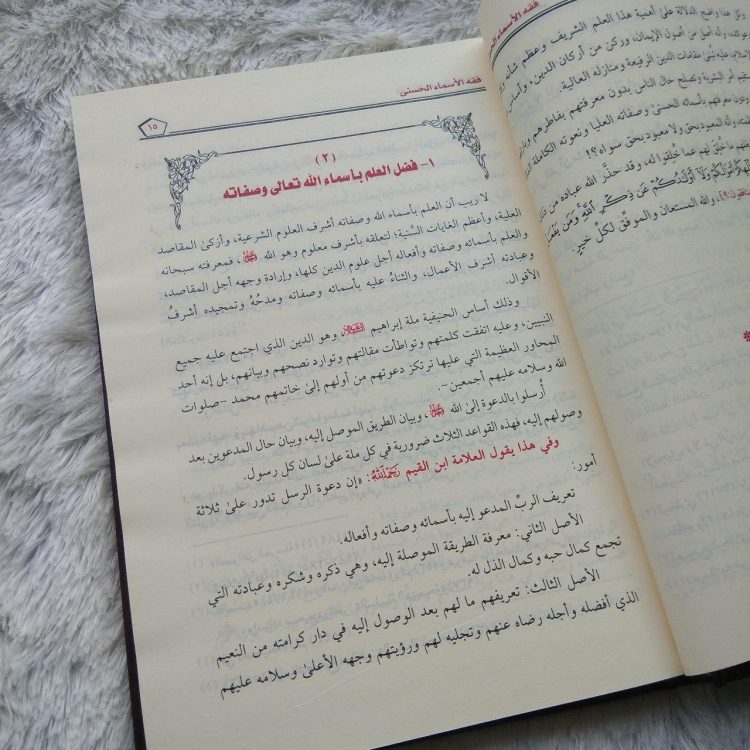 فقه الأسماء الحسنى
١٥
(٢)
١- فضل العلم بأسماء الله تعالى وصفاته
لا ريب أن العلم بأسماء الله وصفاته أشرف العلوم الشرعية، وأزكى المقاصد
العلية، وأعظم الغايات السَّنِية؛ لتعلقه بأشرف معلوم وهو الله ﷻ، فمعرفته سبحانه
والعلم بأسمائه وصفاته وأفعاله أجل علوم الدين كلها، وإرادة وجهه أجل المقاصد،
وعبادته أشرف الأعمال، والثناءُ عليه بأسمائه وصفاته ومدحُهُ وتمجيده أشرفُ
الأقوال.
وذلك أساس الحنيفية ملة إبراهيم، وهو الدين الذي اجتمع عليه جميع
النبيين، وعليه اتفقت كلمتهم وتواطأت مقالتهم وتوارد نصحهم وبيانهم، بل إنه أحد
المحاور العظيمة التي عليها ترتكز دعوتهم من أولهم إلىٰ خاتمهم محمد -صلوات
الله وسلامه عليهم أجمعين-.
أُرسلوا بالدعوة إلىٰ الله ﷻ، وبيان الطريق الموصل إليه، وبيان حال المدعوين بعد
وصولهم إليه، فهذه القواعد الثلاث ضرورية في كل ملة علىٰ لسان كل رسول.
وفي هذا يقول العلامة ابن القيم رَحِمَهُ اللَّهُ: «إن دعوة الرسل تدور علىٰ ثلاثة
أمور:
تعريف الربِّ المدعو إليه بأسمائه وصفاته وأفعاله.
الأصل الثاني: معرفة الطريقة الموصلة إليه، وهي ذكره وشكره وعبادته التي
تجمع كمال حبه وكمال الذل له.
الأصل الثالث: تعريفهم ما لهم بعد الوصول إليه في دار كرامته من النعيم
الذي أفضله وأجله رضاه عنهم وتجليه لهم ورؤيتهم وجهه الأعلىٰ وسلامه عليهم
فقه الأسماء
هذا واضح الدلالة علىٰ أهمية هذا العلم الشريف وعظم شأنه
أصل من أصول الإيمان، وركن من أركان الدين، وأساس
عليه تُبنى مقامات الدين الرفيعة ومنازله العالية.
البشرية وتصلح حال الناس بدون معرفتهم بفاطرهم
معرفتهم بأسمائه الحسنىٰ وصفاته العليا ونعوته الكاملة
المعبود بحق ولا معبود بحق سواه؟!
خُلِقَ لهم عما خُلقوا له، وقد حذَّر الله عباده من ذلك
والله المستعان والموفِّق لكل خير